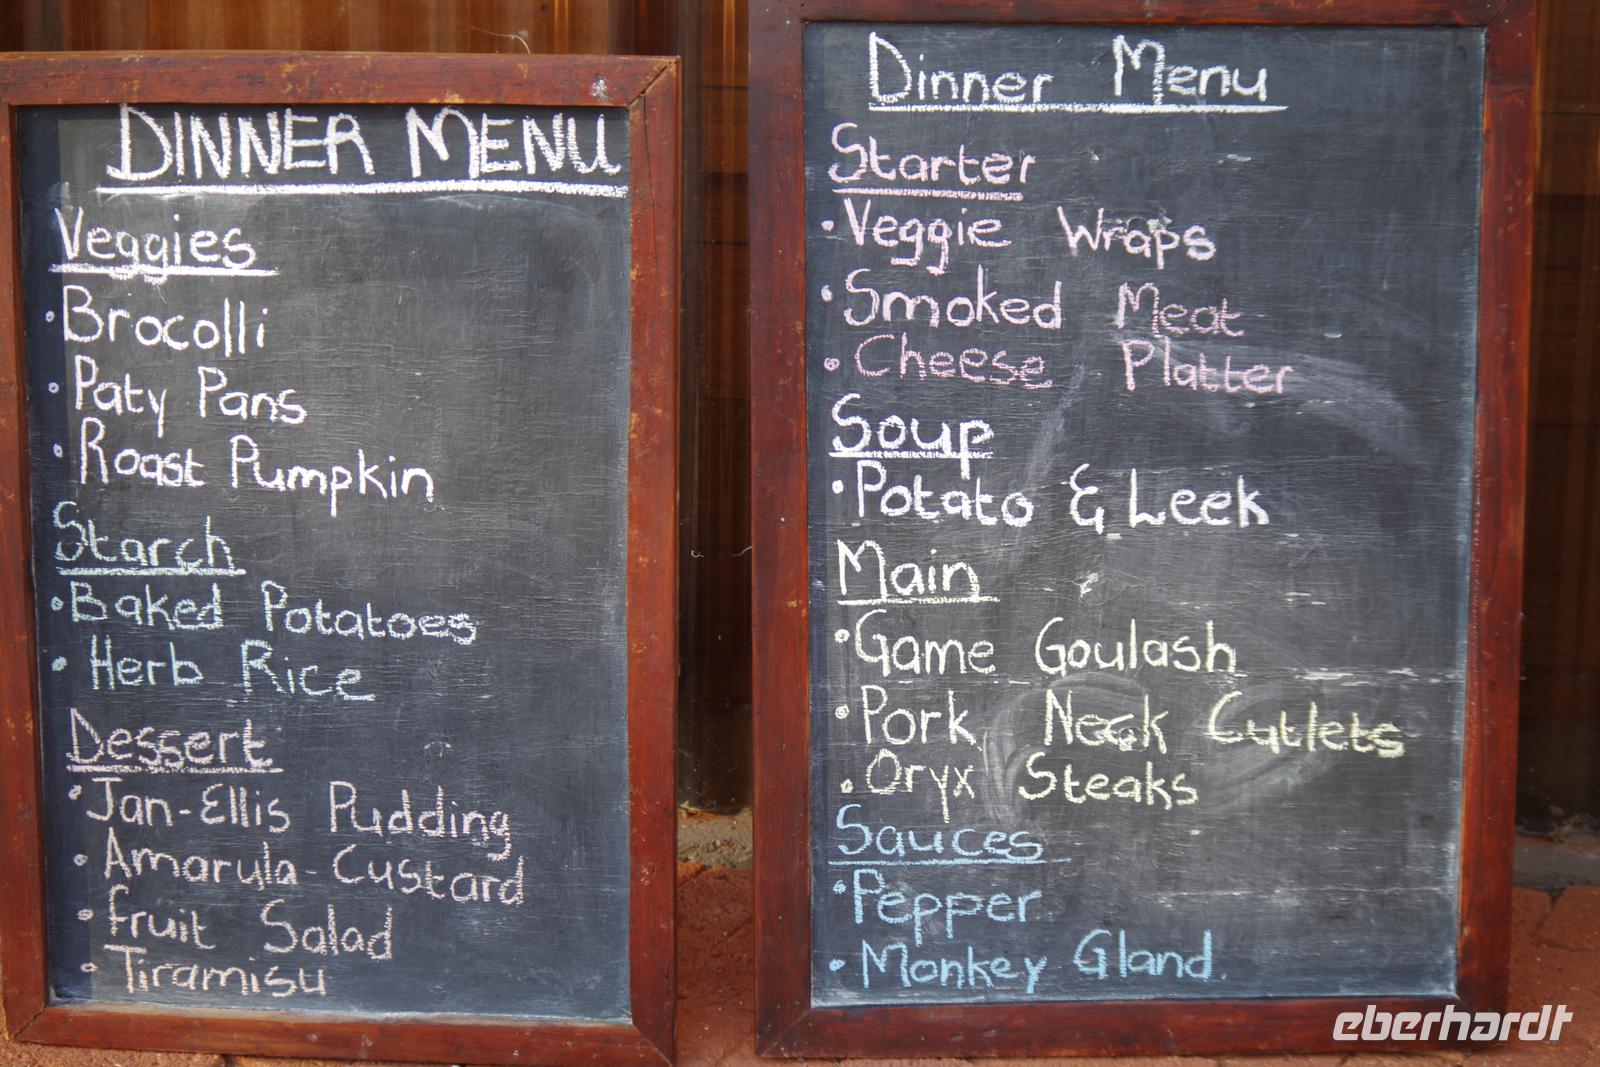 DINNER MENU
Veggies
• Brocolli
• Paty Pans
• Roast Pumpkin
Starch
• Baked Potatoes
• Herb Rice
Dessert
• Jan-Ellis Pudding
• Amarula-Custard
• Fruit Salad
• Tiramisu
Dinner Menu
Starter
• Veggie Wraps
• Smoked Meat
• Cheese Platter
Soup
• Potato & Leek
Main
• Game Goulash
• Pork Neck Cutlets
• Oryx Steaks
Sauces
• Pepper
• Monkey Gland.
eberhardt